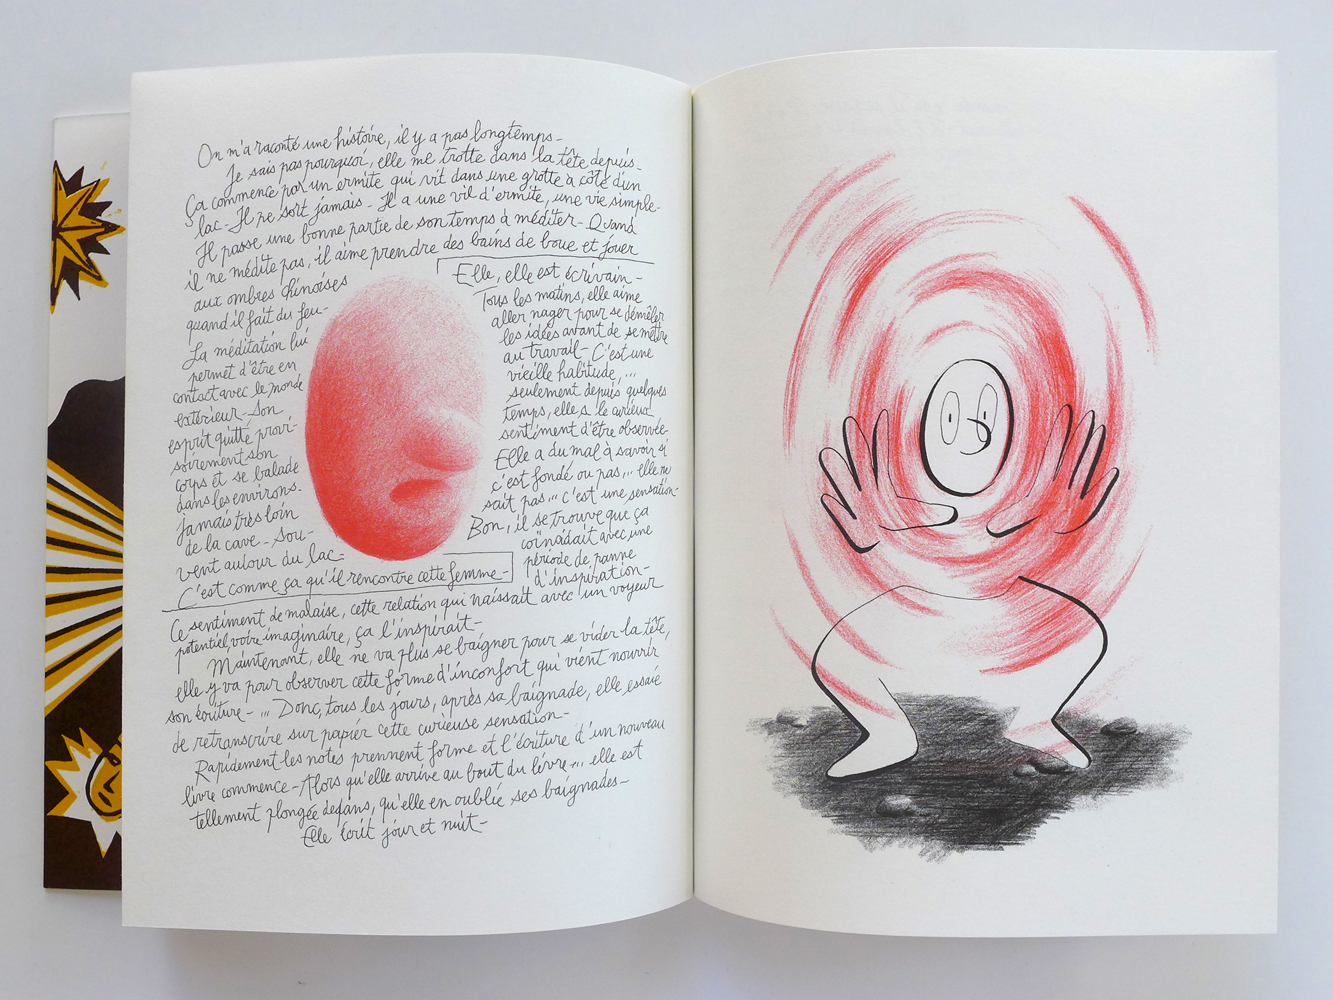 On m'a raconté une histoire, il y a pas longtemps-
Je sais pas pourquoi, elle me trotte dans la tête depuis-
Ça commence par un ermite qui vit dans une grotte à côté d'un
lac- Il ne sort jamais- Il a une vie d'ermite, une vie simple-
Il passe une bonne partie de son temps à méditer- Quand
il ne médite pas, il aime prendre des bains de boue et jouer
aux ombres chinoises
quand il fait du feu-
La méditation lui
permet d'être en
contact avec le monde
extérieur- Son
esprit quitte provi-
soirement son
corps et se balade
dans les environs-
jamais très loin
de la cave- Sou-
vent autour du lac-
C'est comme ça qu'il rencontre cette femme-
Elle, elle est écrivain-
Tous les matins, elle aime
aller nager pour se démêler
les idées avant de se mettre
au travail- C'est une
vieille habitude...
seulement depuis quelques
temps, elle a le curieux
sentiment d'être observée-
Elle a du mal à savoir si
c'est fondé ou pas... elle ne
sait pas... c'est une sensation-
Bon, il se trouve que ça
coïncidait avec une
période de panne
d'inspiration-
Ce sentiment de malaise, cette relation qui naissait avec un voyeur
potentiel, voire imaginaire, ça l'inspirait-
Maintenant, elle ne va plus se baigner pour se vider la tête,
elle y va pour observer cette forme d'inconfort qui vient nourrir
son écriture-... Donc, tous les jours, après sa baignade, elle essaie
de retranscrire sur papier cette curieuse sensation-
Rapidement les notes prennent forme et l'écriture d'un nouveau
livre commence- Alors qu'elle arrive au bout du livre... elle est
tellement plongée dedans, qu'elle en oublie ses baignades-
Elle écrit jour et nuit-